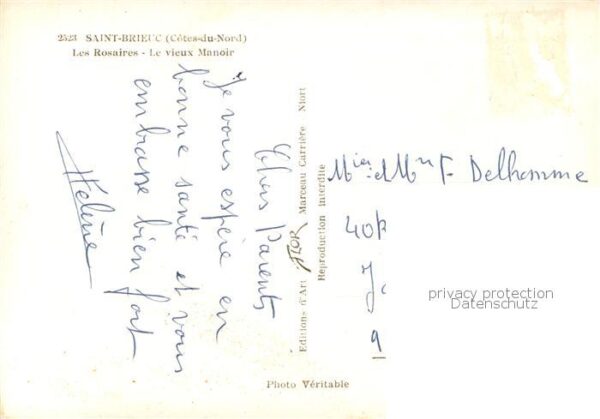 2523 SAINT-BRIEUC (Côtes-du-Nord)
Les Rosaires - Le vieux Manoir
Chers Parents
Je vous espère en
bonne santé et vous
embrasse bien fort
Hélène
Editions d'Art JFLOR Marceau Carrière - Niort
Reproduction interdite
et Mme F Delhomme
40
J
9
privacy protection
Datenschutz
Photo Véritable